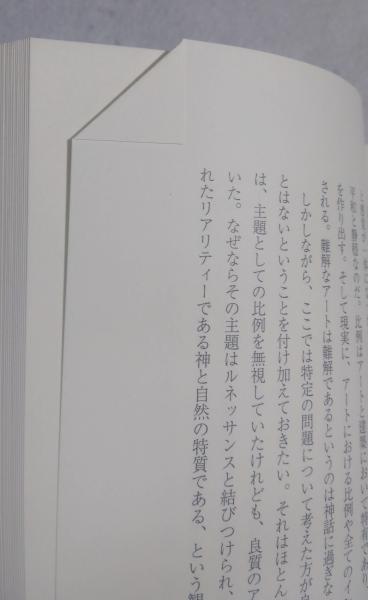 平和と静穏なのだ。比例はアートと建築において特有であり、
を作り出す。そして現実に、アートにおける比例や全てのイ
される。難解なアートは難解であるというのは神話に過ぎな
しかしながら、ここでは特定の問題について考えた方が良
とはないということを付け加えておきたい。それはほとん
は、主題としての比例を無視していたけれども、良質のア
いた。なぜならその主題はルネッサンスと結びつけられ、
れたリアリティーである神と自然の特質である、という観